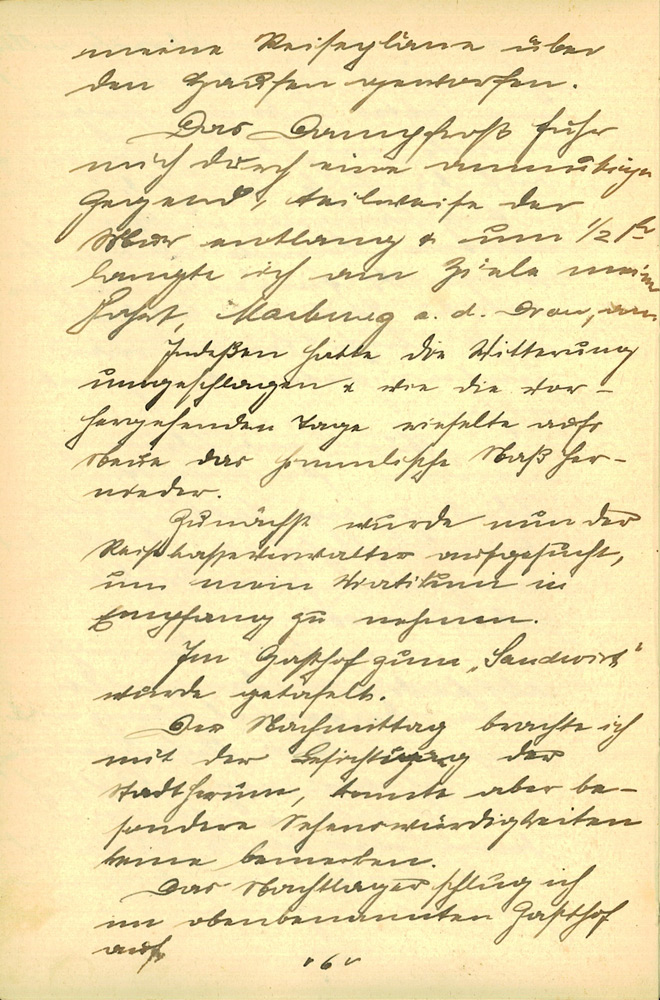 meine Reisepläne über
den Haufen geworfen.
Das Dampfroß fuhr
mich durch eine anmutige
Gegend, teilweise der
Mur entlang & um 1/2
langte ich am Ziele meiner
Fahrt, Marburg a. d. Drau, an.
Indeßen hatte die Witterung
umgeschlagen & wie die vor-
hergehenden Tage rieselte aufs
Neue das himmlische Naß her-
nieder.
Zunächst wurde nun der
Reisekasseverwalter aufgesucht,
um mein Viatikum in
Empfang zu nehmen.
Im Gasthof zum „Sandwirt"
wurde getafelt.
Den Nachmittag brachte ich
mit der Besichtigung der
Stadt herum, konnte aber be-
sondere Sehenswürdigkeiten
keine bemerken.
Das Nachtlager schlug ich
im obenbenannten Gasthof
auf.
"6"